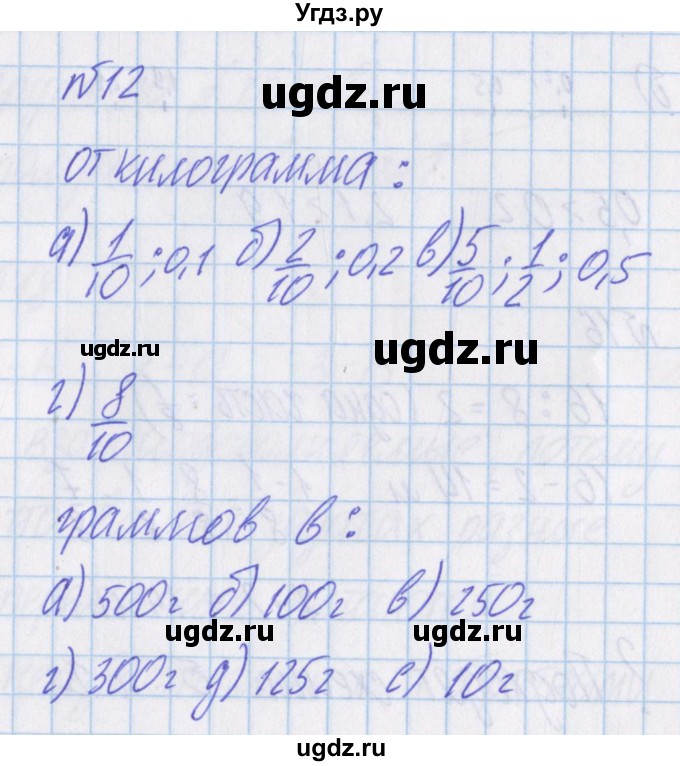 Угдз.ру
№12
ugdz.ru
от килограмма:
а) 1/10; 0,1 б) 2/10; 0,2 в) 5/10; 1/2; 0,5
ugdz.ru
ugdz.ru
г) 8/10
граммов в:
а) 500г б) 100г в) 250г
ugdz.ru
ugdz.ru
г) 300г д) 125г е) 10г
ugdz.ru